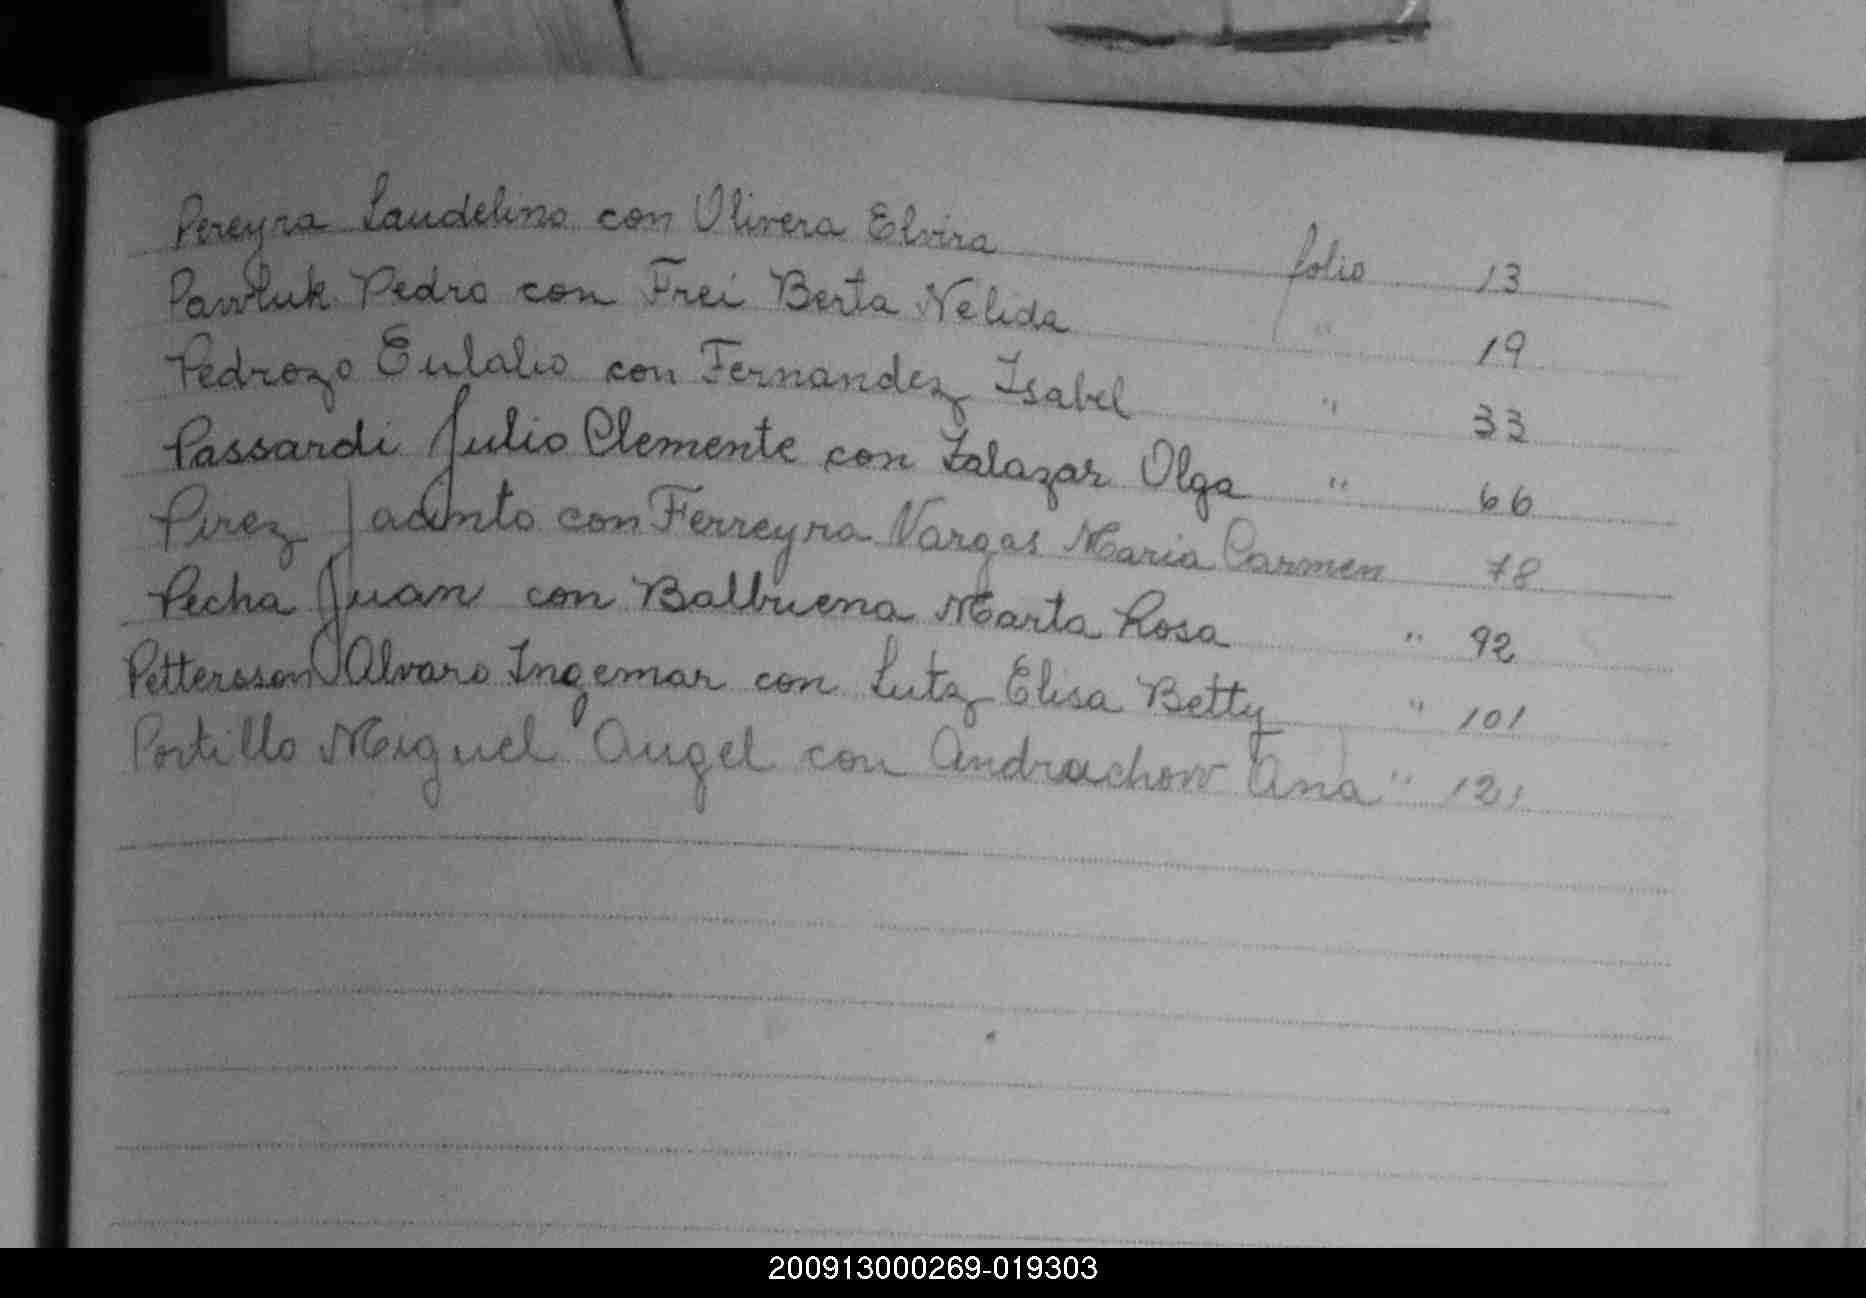 Pereyra Laudelino con Olivera Elvira folio 13
Pawluk Pedro con Frei Berta Nelida " 19
Pedrozo Eulalio con Fernandez Isabel " 33
Passardi Julio Clemente con Zalazar Olga " 66
Pirez Jacinto con Ferreyra Vargas Maria Carmen 78
Pecha Juan con Balbuena Marta Rosa " 92
Pettersson Alvaro Ingemar con Lutz Elisa Betty " 101
Portillo Miguel Angel con Andrachow Ana " 121
200913000269-019303